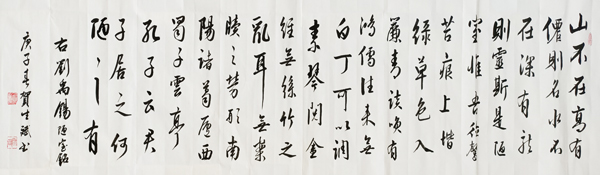 山不在高有
僊則名水不
在深有龍
則靈斯是陋
室惟吾德馨
苔痕上堦
綠草色入
簾青談咲有
鴻儒往來無
白丁可以調
素琴閱金
經無絲竹之
亂耳無案
牘之勞形南
陽諸葛廬西
蜀子雲亭
孔子云君
子居之何
陋之有
右劉禹錫陋室銘
庚子春賀書